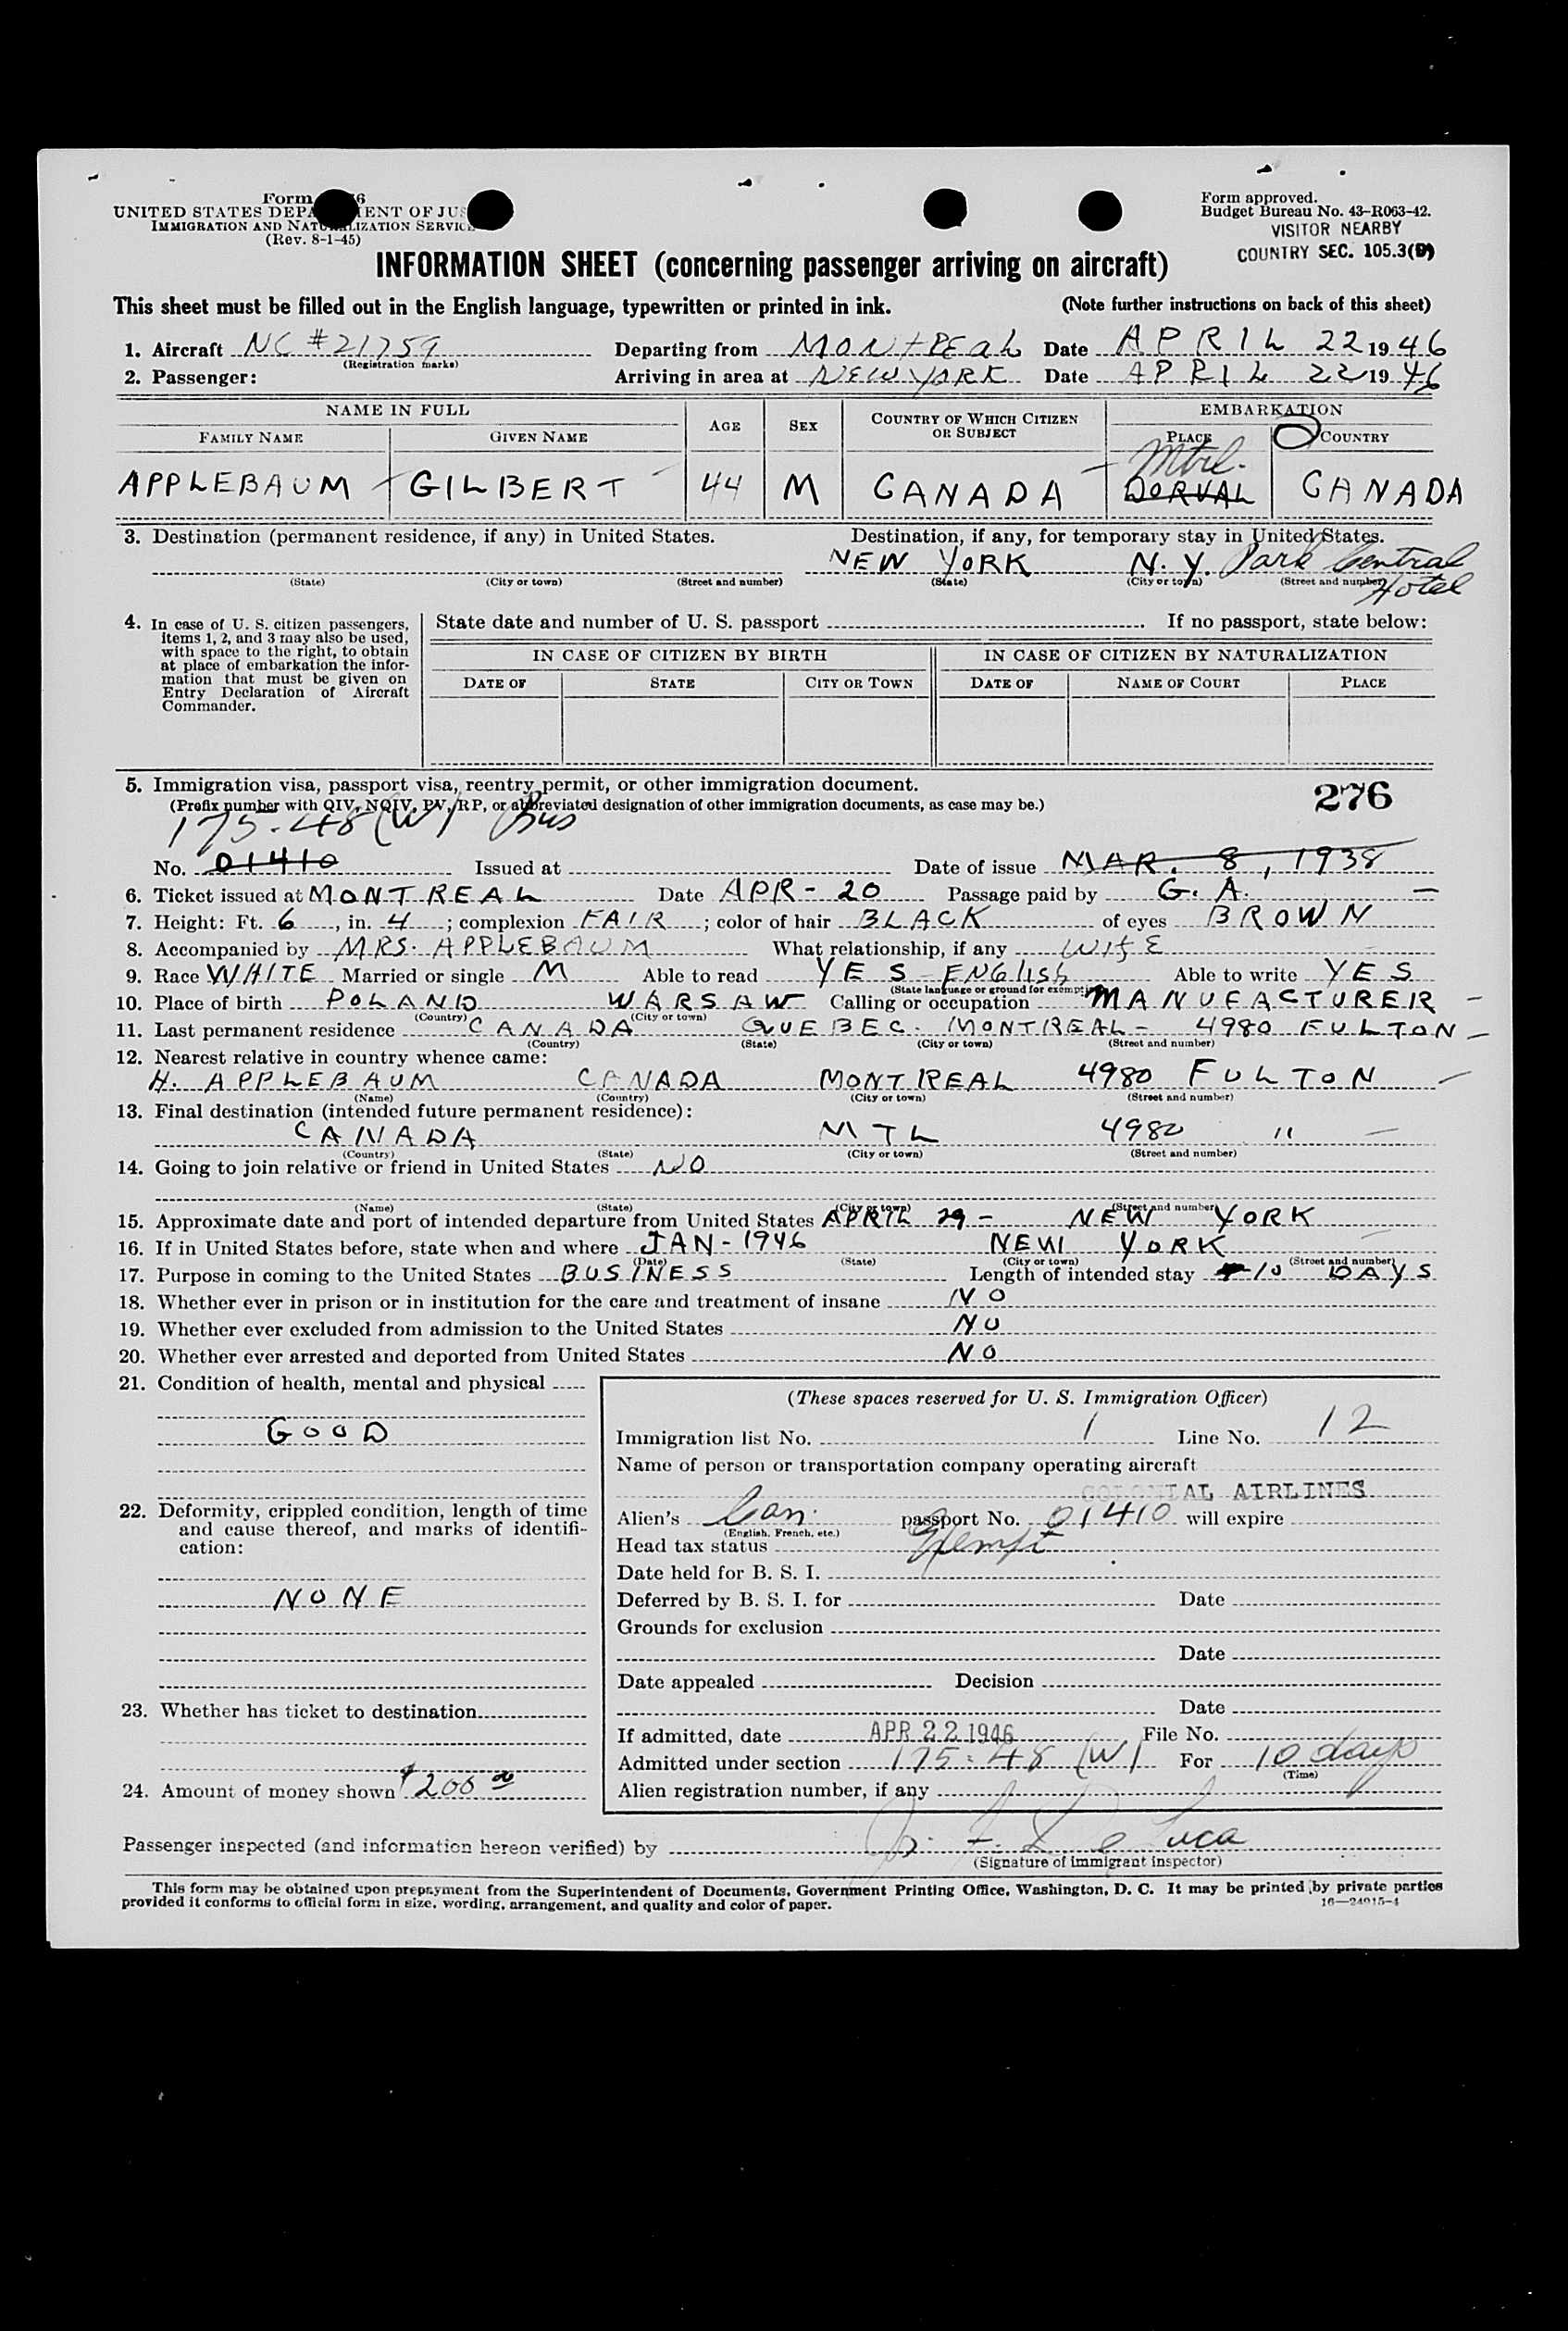 Form
UNITED STATES DEPARTMENT OF JUSTICE
IMMIGRATION AND NATURALIZATION SERVICE
(Rev. 8-1-45)
Form approved.
Budget Bureau No. 43-R063-42.
VISITOR NEARBY
COUNTRY SEC. 105.3(B)
INFORMATION SHEET (concerning passenger arriving on aircraft)
This sheet must be filled out in the English language, typewritten or printed in ink. (Note further instructions on back of this sheet)
1. Aircraft NC #21759 Departing from MONTREAL Date APRIL 22 1946
(Registration marks)
2. Passenger: Arriving in area at NEW YORK Date APRIL 22 1946
NAME IN FULL AGE SEX COUNTRY OF WHICH CITIZEN OR SUBJECT EMBARKATION
FAMILY NAME GIVEN NAME PLACE COUNTRY
Mtrl.
APPLEBAUM GILBERT 44 M CANADA DORVAL CANADA
3. Destination (permanent residence, if any) in United States. Destination, if any, for temporary stay in United States.
NEW YORK N. Y. Park Central Hotel
(State) (City or town) (Street and number) (State) (City or town) (Street and number)
4. In case of U. S. citizen passengers, items 1, 2, and 3 may also be used, with space to the right, to obtain at place of embarkation the information that must be given on Entry Declaration of Aircraft Commander.
State date and number of U. S. passport If no passport, state below:
IN CASE OF CITIZEN BY BIRTH IN CASE OF CITIZEN BY NATURALIZATION
DATE OF STATE CITY OR TOWN DATE OF NAME OF COURT PLACE
5. Immigration visa, passport visa, reentry permit, or other immigration document. 276
(Prefix number with QIV, NQIV, PV, RP, or abbreviated designation of other immigration documents, as case may be.)
175.48 (W) Bus
No. 01410 Issued at Date of issue MAR. 8, 1938
6. Ticket issued at MONTREAL Date APR - 20 Passage paid by G. A.
7. Height: Ft. 6, in. 4; complexion FAIR; color of hair BLACK of eyes BROWN
8. Accompanied by MRS. APPLEBAUM What relationship, if any WIFE
9. Race WHITE Married or single M Able to read YES - ENGLISH Able to write YES
(State language or ground for exemption)
10. Place of birth POLAND WARSAW Calling or occupation MANUFACTURER
(Country) (City or town)
11. Last permanent residence CANADA QUEBEC. MONTREAL - 4980 FULTON
(Country) (State) (City or town) (Street and number)
12. Nearest relative in country whence came:
H. APPLEBAUM CANADA MONTREAL 4980 FULTON
(Name) (Country) (City or town) (Street and number)
13. Final destination (intended future permanent residence):
CANADA MTL 4980 "
(Country) (State) (City or town) (Street and number)
14. Going to join relative or friend in United States NO
(Name) (State) (City or town) (Street and number)
15. Approximate date and port of intended departure from United States APRIL 29 - NEW YORK
16. If in United States before, state when and where JAN - 1946 NEW YORK
(Date) (State) (City or town) (Street and number)
17. Purpose in coming to the United States BUSINESS Length of intended stay 10 DAYS
18. Whether ever in prison or in institution for the care and treatment of insane NO
19. Whether ever excluded from admission to the United States NO
20. Whether ever arrested and deported from United States NO
21. Condition of health, mental and physical
GOOD
22. Deformity, crippled condition, length of time and cause thereof, and marks of identification:
NONE
23. Whether has ticket to destination
24. Amount of money shown $200 00
(These spaces reserved for U. S. Immigration Officer)
Immigration list No. 1 Line No. 12
Name of person or transportation company operating aircraft
COLONIAL AIRLINES
Alien's Can. passport No. 01410 will expire
(English, French, etc.)
Head tax status Exempt
Date held for B. S. I.
Deferred by B. S. I. for Date
Grounds for exclusion
Date
Date appealed Decision
Date
If admitted, date APR 22 1946 File No.
Admitted under section 175.48 (W) For 10 days
(Time)
Alien registration number, if any
Passenger inspected (and information hereon verified) by De Luca
(Signature of immigrant inspector)
This form may be obtained upon prepayment from the Superintendent of Documents, Government Printing Office, Washington, D. C. It may be printed by private parties
provided it conforms to official form in size, wording, arrangement, and quality and color of paper. 16—24915-4